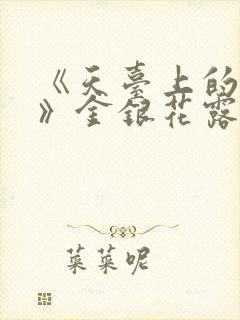 《天臺上的
》金銀花露
菜菜呢